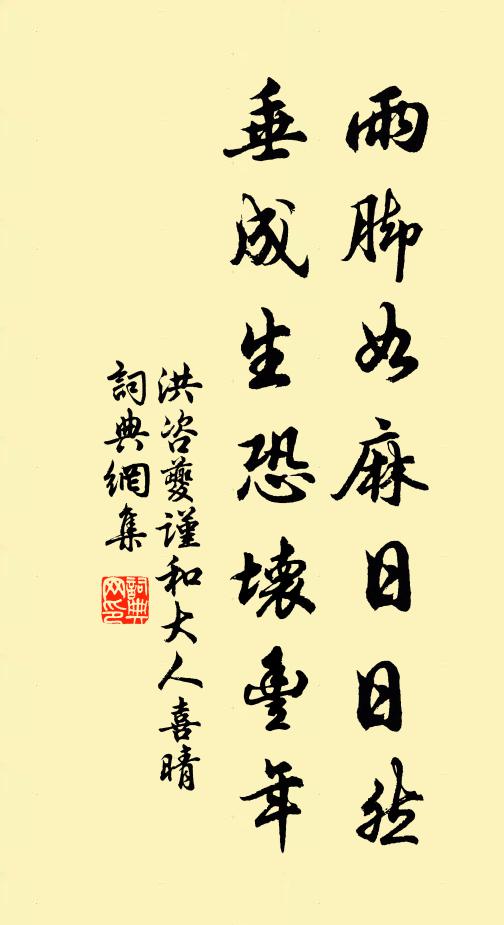 雨脚如麻日日然
垂成生恐壞豐年
洪咨夔謹和大人喜晴
詞典網集
詞典網印